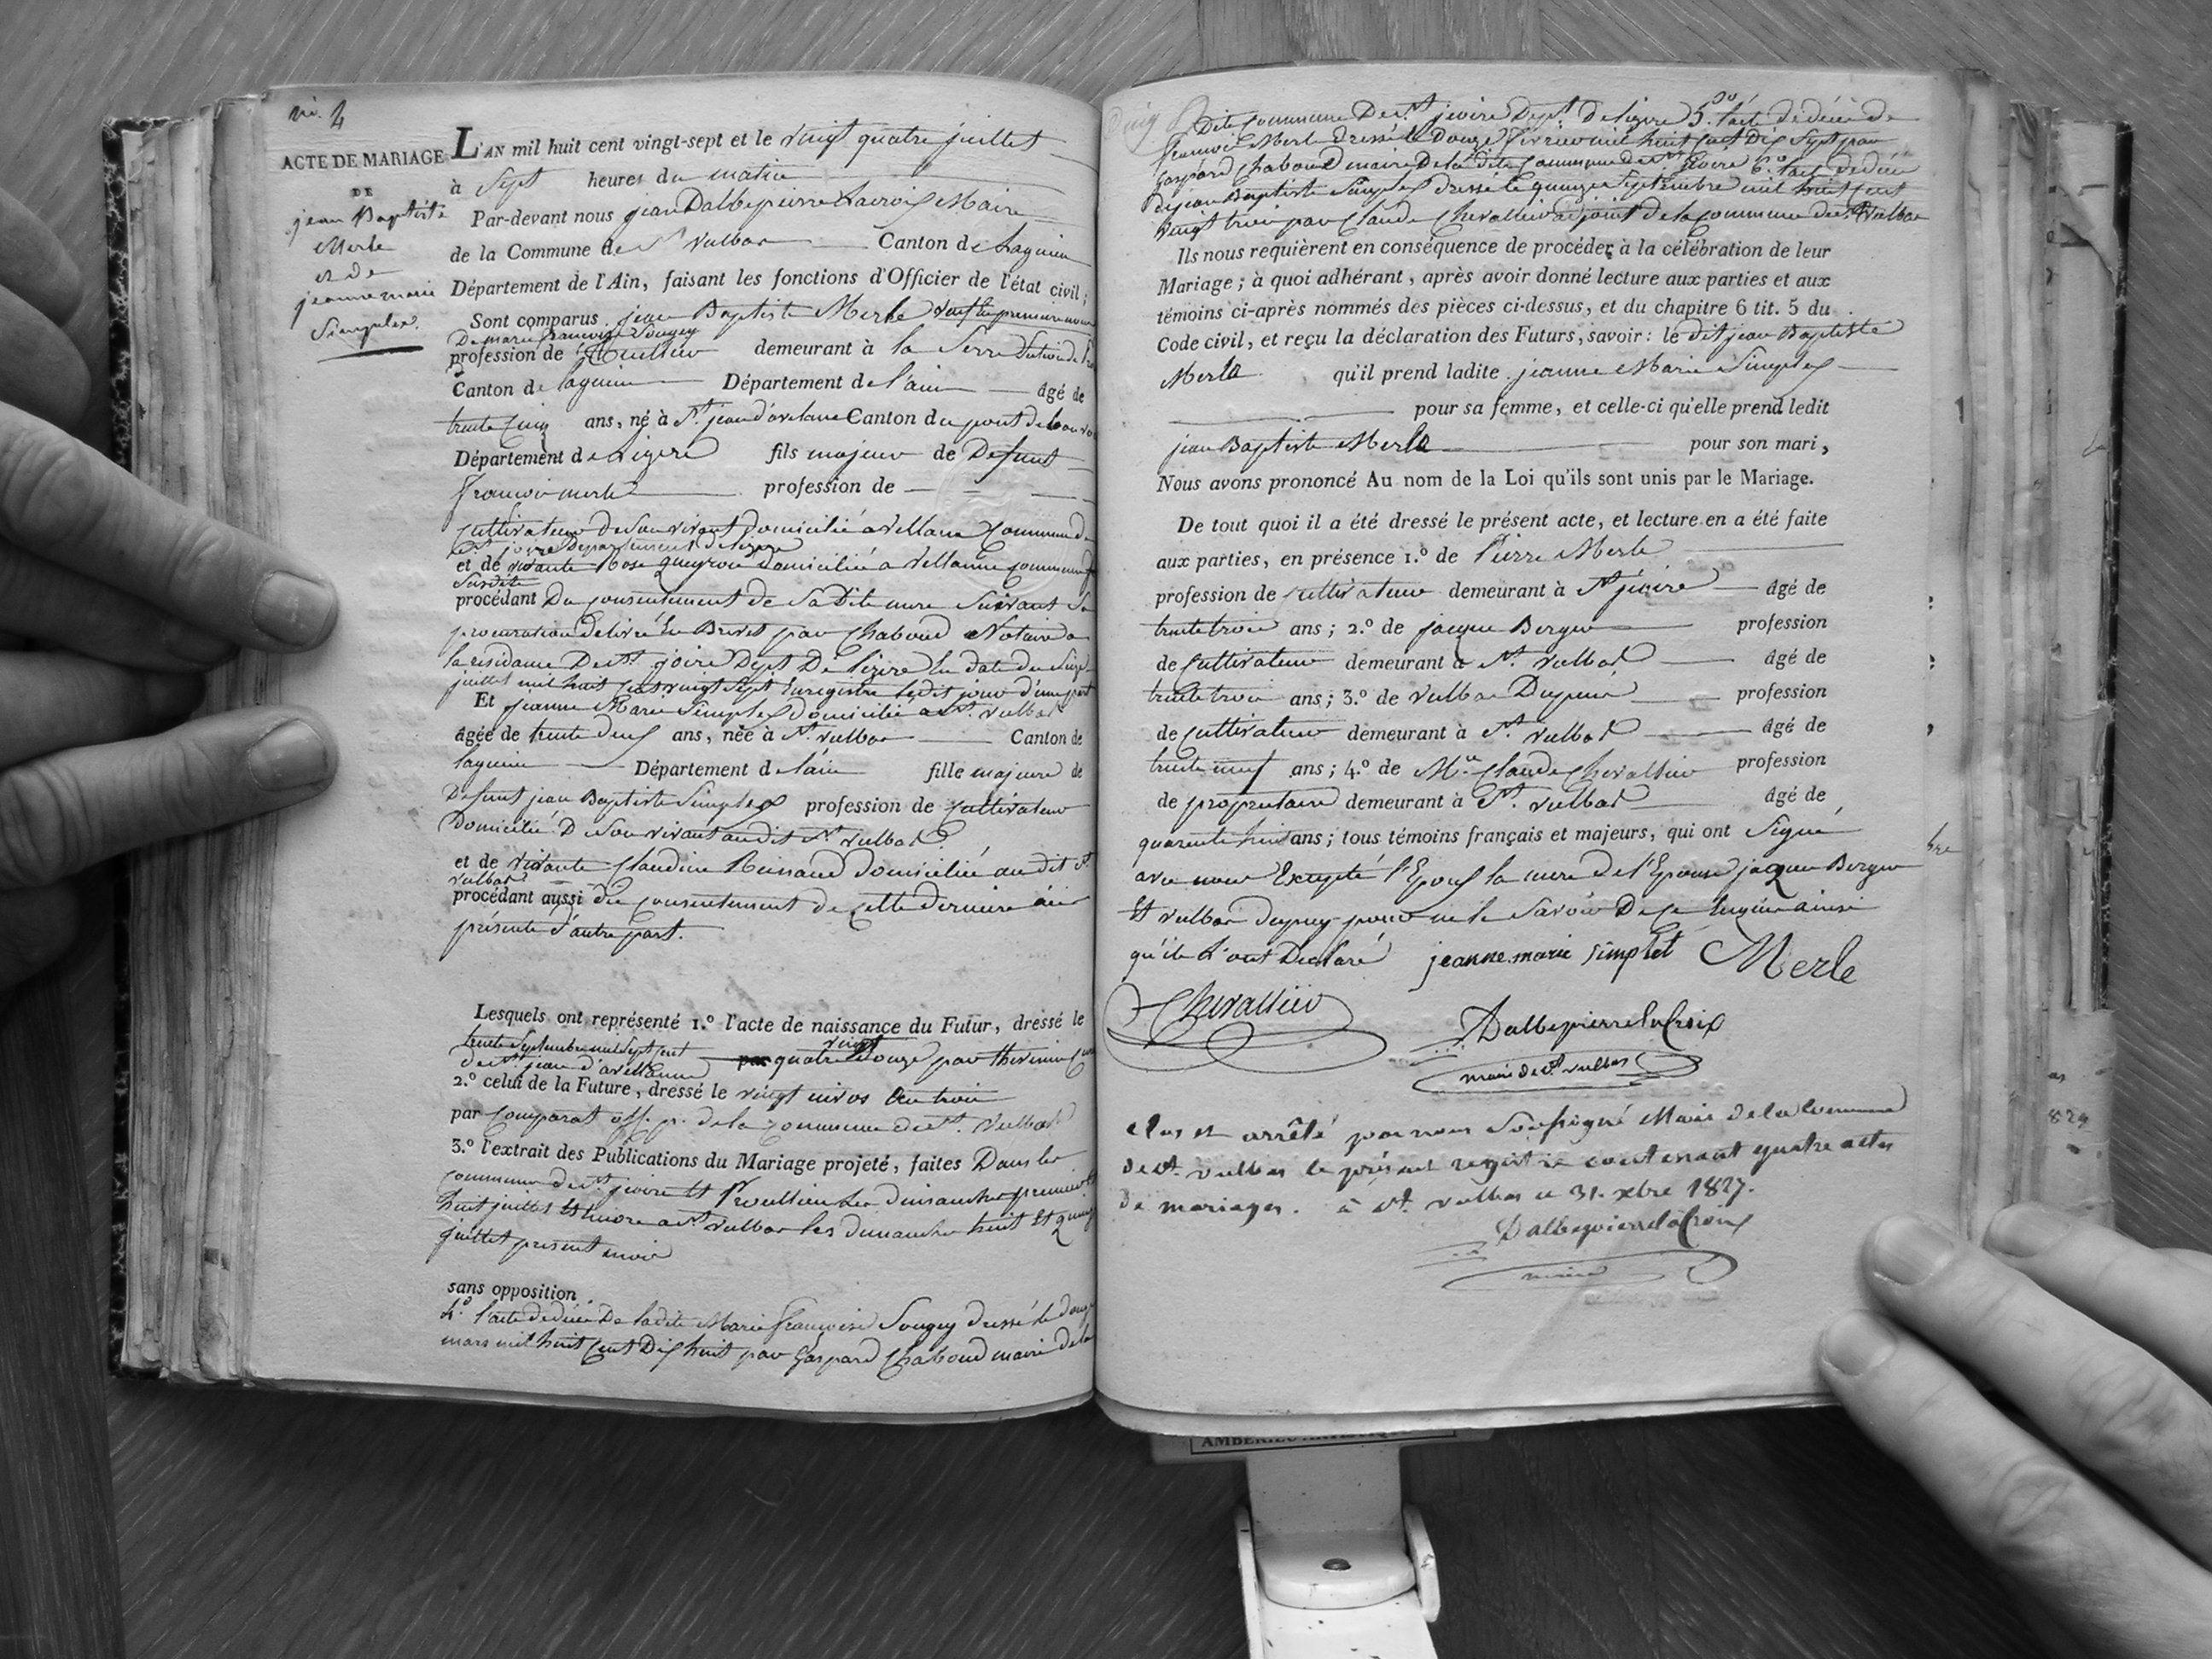 no. 4
ACTE DE MARIAGE
DE
jean Baptiste
Merle
et de
jeanne marie
Simplex.
L'AN mil huit cent vingt-sept et le vingt quatre juillet
à Sept heures du matin
Par-devant nous jean Dalbepierre Lacroix Maire
de la Commune de St Vulbas Canton de Lagnieu
Département de l'Ain, faisant les fonctions d'Officier de l'état civil;
Sont comparus jean Baptiste Merle veuf en premiere noce
De marie francoise Sougey
profession de demeurant à la Serre
Canton de Lagnieu Département de l'ain âgé de
trente cinq ans, né à St jean d'avelane Canton du pont de Beauvoi
Département de Lizere fils majeur de Defunt
francois merle profession de
Cultivateur de Son vivant domicilié a Vellane Commune de
St joire Département de lizere
et de vivante Rose queyron domiciliée a Vellanne commune
Susdite
procédant Du consentement de Sa Dite mere Suivant Sa
procuration delivré En Brevet par Chaboud Notaire a
la residance De St. joire Dept De lizire En date du Seize
juillet mil huit cent vingt Sept Enregistré ledit jour d'une part
Et jeanne Marie Simplex domiciliée a St. Vulbas
âgée de trente deux ans, née à St. vulbas Canton de
lagnieu Département de lain fille majeure de
Defunt jean Baptiste Simplex profession de Cultivateur
Domicilié De Son vivant audit St vulbas
et de vivante Claudine Reinaud domiciliée au dit St
vulbas
procédant aussi du consentement de cette derniere ici
présente d'autre part.
Lesquels ont représenté 1.º l'acte de naissance du Futur, dressé le
trente Septembre mil Sept cent vingt
de St. jean d'avellanne par quatre Douze par thevenin Curé
2.º celui de la Future, dressé le vingt nivos an trois
par Comparat off. p. de la commune de St. Vulbas
3.º l'extrait des Publications du Mariage projeté, faites Dans les
communes de St. joire Et Proulieu les dimanches premier Et
huit juillet Et Encore a St. Vulbas les dimanches huit Et quinze
juillet present mois
sans opposition
4.º l'acte de décès De ladite Marie francoise Sougey dressé le douze
mars mil huit Cent Dix huit par Gaspard Chaboud maire de la
Dite Commune De St. joire Dept De lizere 5.º l'acte de décès de
francois Merle Dressé le Douze fevrier mil huit Cent Dix Sept par
Gaspard Chaboud maire De la dite Commune de St joire 6.º l'acte de décès
de jean Baptiste Simplex dressé le quinze Septembre mil huit Cent
vingt trois par Claude Chevallier adjoint de la Commune de St Vulbas
Ils nous requièrent en conséquence de procéder à la célébration de leur
Mariage; à quoi adhérant, après avoir donné lecture aux parties et aux
témoins ci-après nommés des pièces ci-dessus, et du chapitre 6 tit. 5 du
Code civil, et reçu la déclaration des Futurs, savoir: le dit jean Baptiste
Merle qu'il prend ladite jeanne Marie Simplex
pour sa femme, et celle-ci qu'elle prend ledit
jean Baptiste Merle pour son mari,
Nous avons prononcé Au nom de la Loi qu'ils sont unis par le Mariage.
De tout quoi il a été dressé le présent acte, et lecture en a été faite
aux parties, en présence 1.º de Pierre Merle
profession de Cultivateur demeurant à St joire âgé de
trente trois ans; 2.º de jacque Berger profession
de Cultivateur demeurant à St. vulbas âgé de
trente trois ans; 3.º de Vulbas Dupuis profession
de Cultivateur demeurant à St. vulbas âgé de
trente neuf ans; 4.º de Mre Claude Chevallier profession
de proprietaire demeurant à St. vulbas âgé de
quarente huit ans; tous témoins français et majeurs, qui ont Signé
avec nous Excepté l'Epoux la mere de l'Epouse jacque Berger
Et Vulbas dupuy pour ne le Savoir De ce Enquis ainsi
qu'ils L'ont Declaré jeanne marie simplet Merle
Chevallier
Dalbepierre la Croix
maire de St vulbas
Clos et arrêté par nous Soussigné Maire de la Commune
de St. vulbas le présent registre contenant quatre actes
de mariages. à St. vulbas ce 31. xbre 1827.
Dalbepierre la Croix
maire